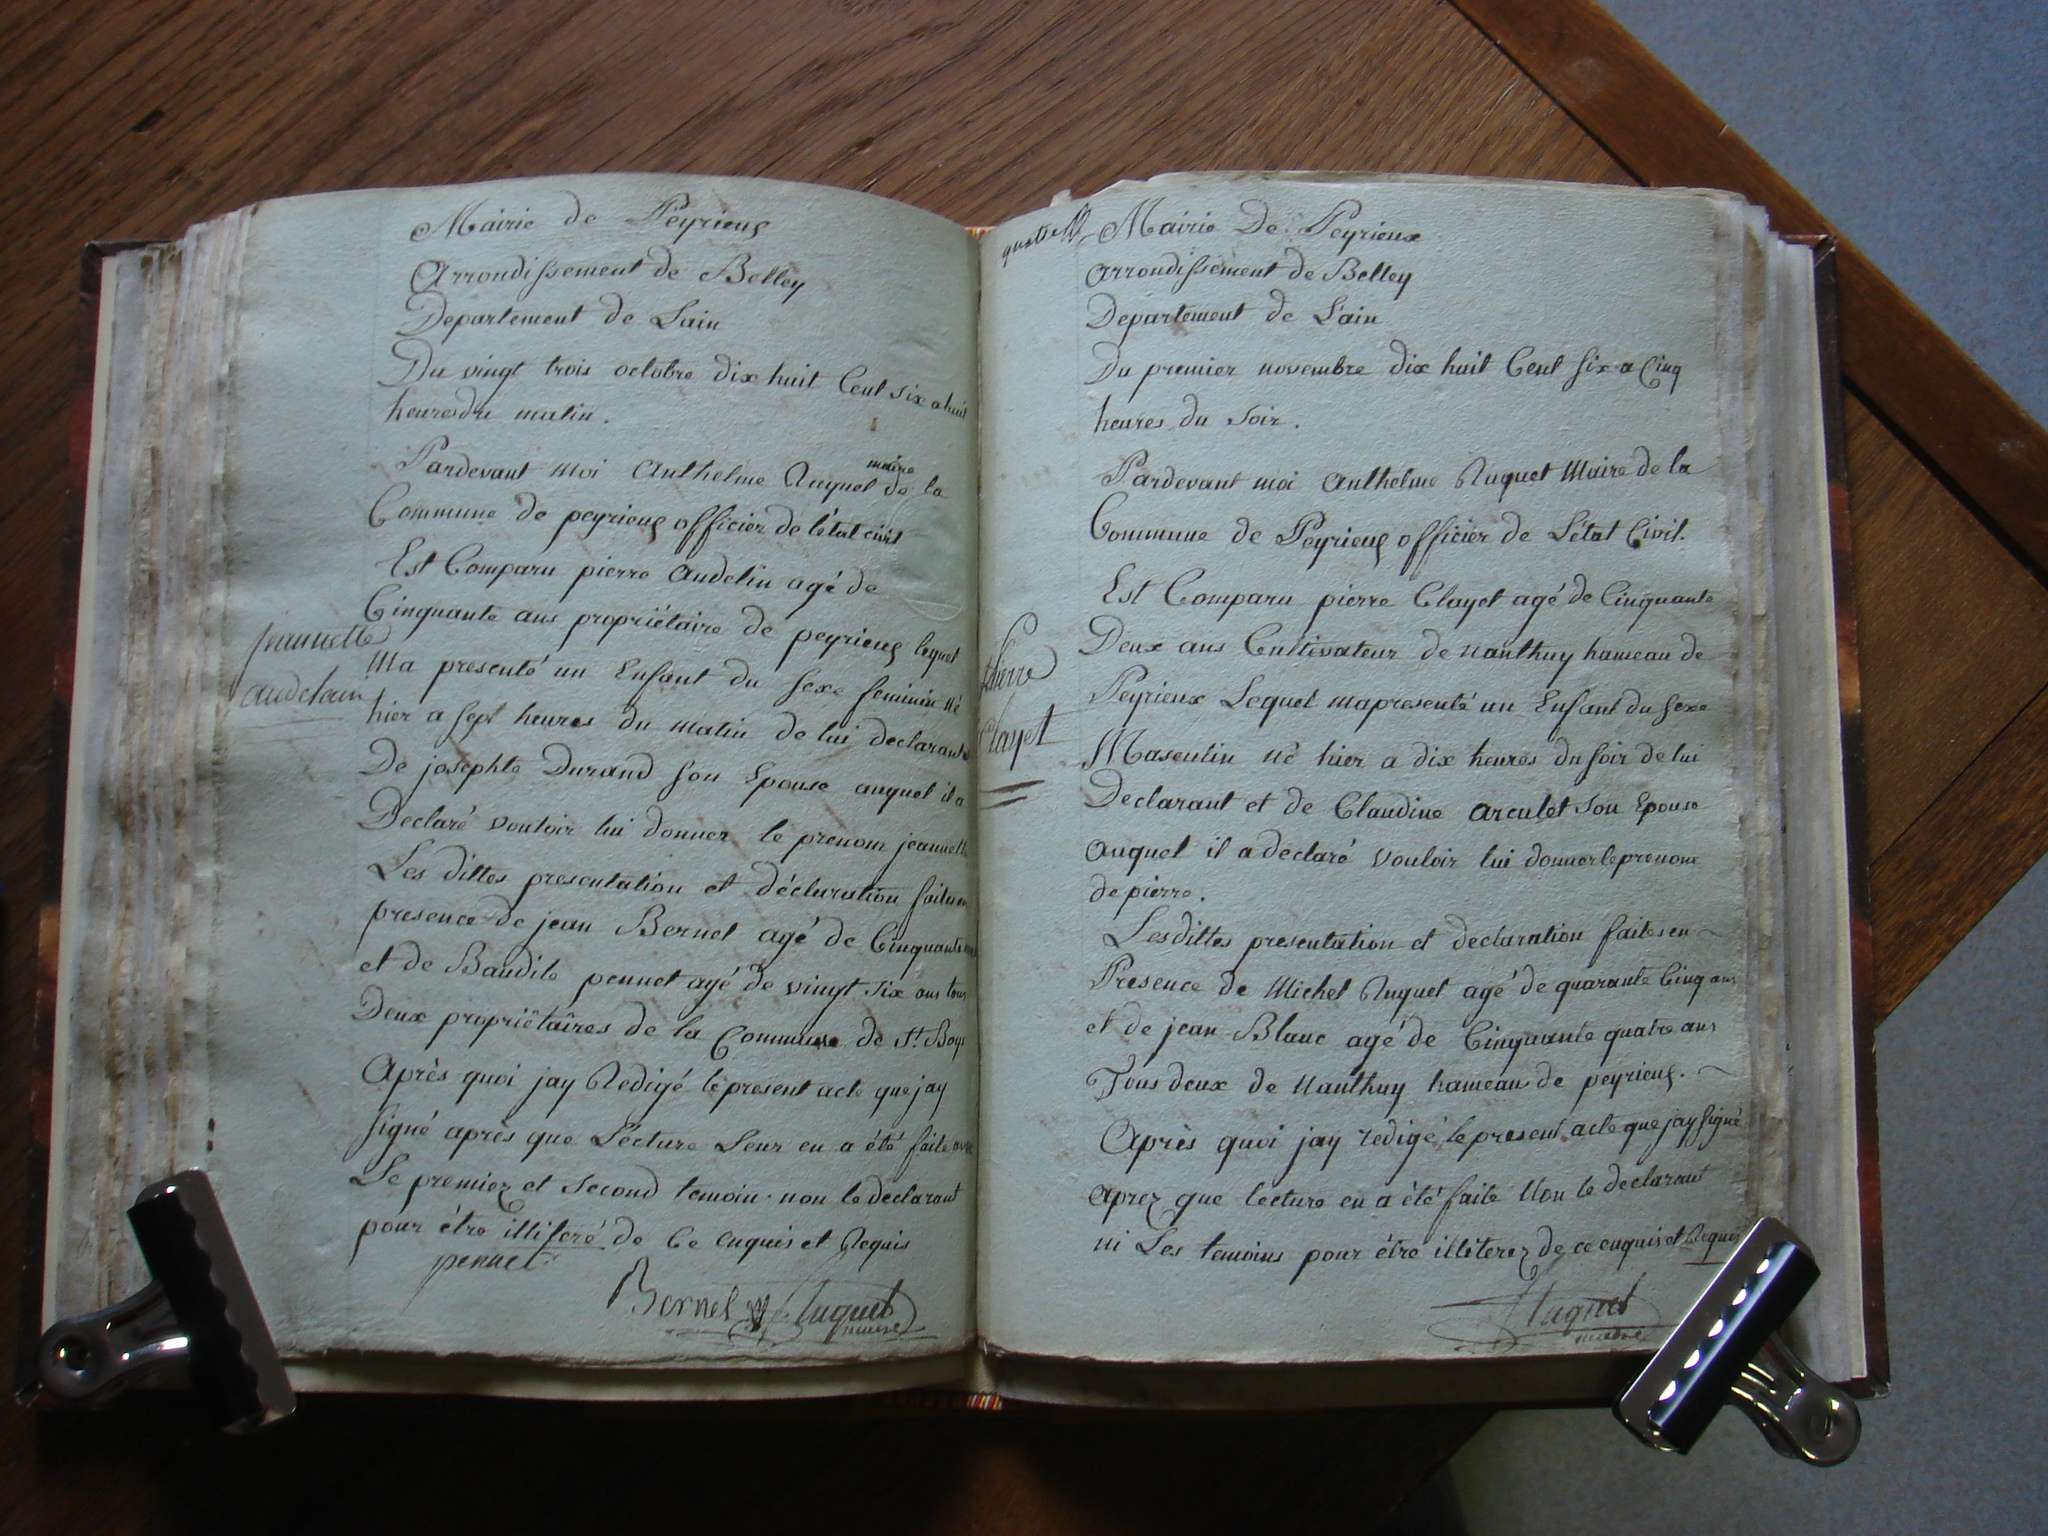 Mairie de Peyrieus
Arrondissement de Belley
Departement de Lain
Du vingt trois octobre dix huit Cent six a huit
heures du matin.
Pardevant moi Anthelme Ruquet maire de la
Commune de peyrieus officier de l'état civil
Est Comparu pierre Audelin agé de
Cinquante ans propriétaire de peyrieus lequel
Jeannette
audelain
Ma presenté un Enfant du sexe feminin né
hier a sept heures du matin de lui declarant
De josephte Durand son Epouse auquel il a
Declaré vouloir lui donner le prenom jeannette
Les dittes presentation et déclaration faites en
presence de jean Bernel agé de Cinquante
et de Baudile pennet agé de vingt six ans tous
Deux propriêtaires de la Commune de St. Boys
Après quoi jay Redigé le present acte que jay
signé après que Lécture Leur en a été faite avec
Le premier et second temoin non le declarant
pour étre illiteré de Ce enquis et Requis
pennet
Bernel Ruquet
maire
quatre
Mairie De Peyrieux
arrondissement de Belley
Departement de L'ain
Du premier novembre dix huit Cent six a Cinq
heures du soir.
Pardevant moi Anthelme Ruquet Maire de la
Commune de Peyrieus officier de L'état Civil.
Est Comparu pierre Clayet agé de Cinquante
Deux ans Cultivateur de nanthuy hameau de
Pierre
Clayet
Peyrieux Lequel mapresenté un Enfant du sexe
Masculin né hier a dix heures du soir de lui
Declarant et de Claudine arculet son Epouse
auquel il a declaré vouloir lui donner le prenom
de pierre.
Les dittes presentation et declaration faites en
Presence de Michel Ruquet agé de quarante Cinq ans
et de jean Blanc agé de Cinquante quatre ans
Tous deux de nanthuy hameau de peyrieus.
Après quoi jay redigé le present acte que jay signé
aprez que lecture en a été faite Non le declarant
ni Les temoins pour étre illiterez de ce enquis et Requis
Ruquet
maire